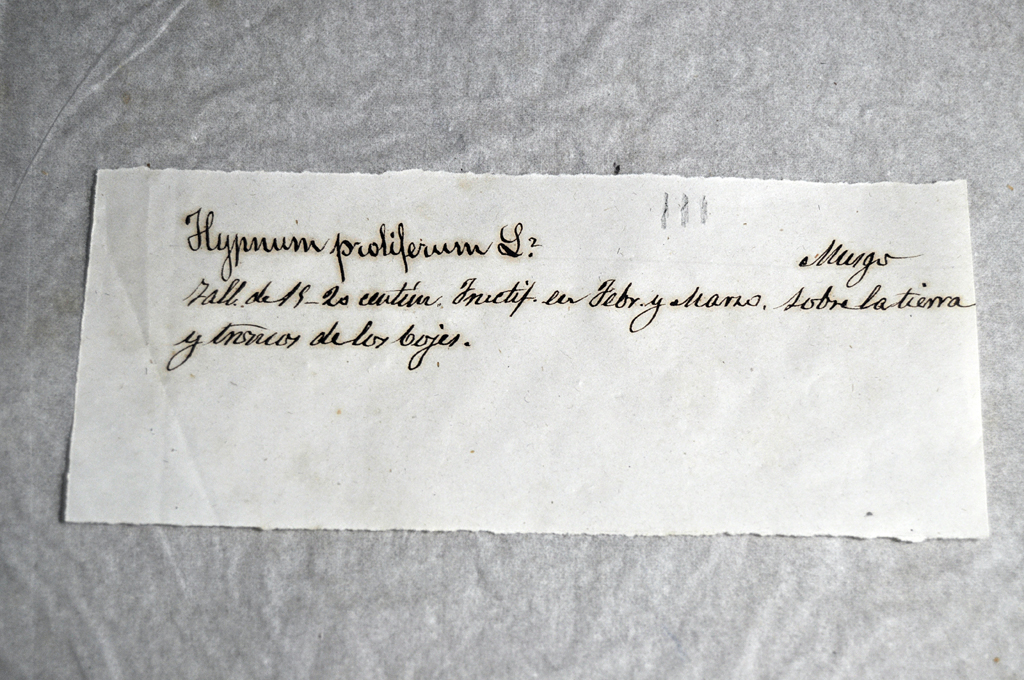 111
Hypnum proliferum L?
Musgo
Tall. de 15-20 centím. Fructif. en Febr. y Marzo. Sobre la tierra
y troncos de los bojes.